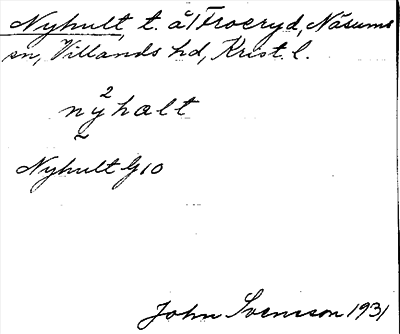 Nyhult, t. å Froeryd, Näsums
sn, Villands hd, Krist. l.
2
nyhalt
~
Nyhult G10
John Svensson 1931